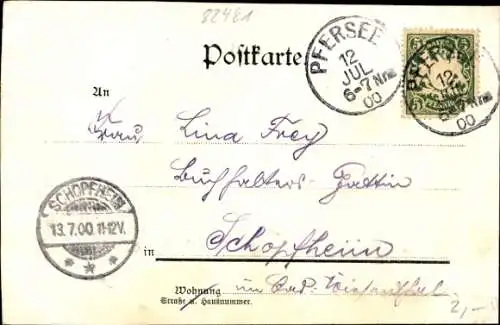 82481
Postkarte
PFERSEE
12
JUL
6-7 Nm
00
5 5
PFERSEE
12
JUL
6-7 Nm
00
An
Frau Lina Frey
Buchhalters-Gattin
SCHOPFHEIM
13.7.00.11-12V.
in Schopfheim
Wohnung im Bad. Wiesenthal
Straße u. Hausnummer.
2,-